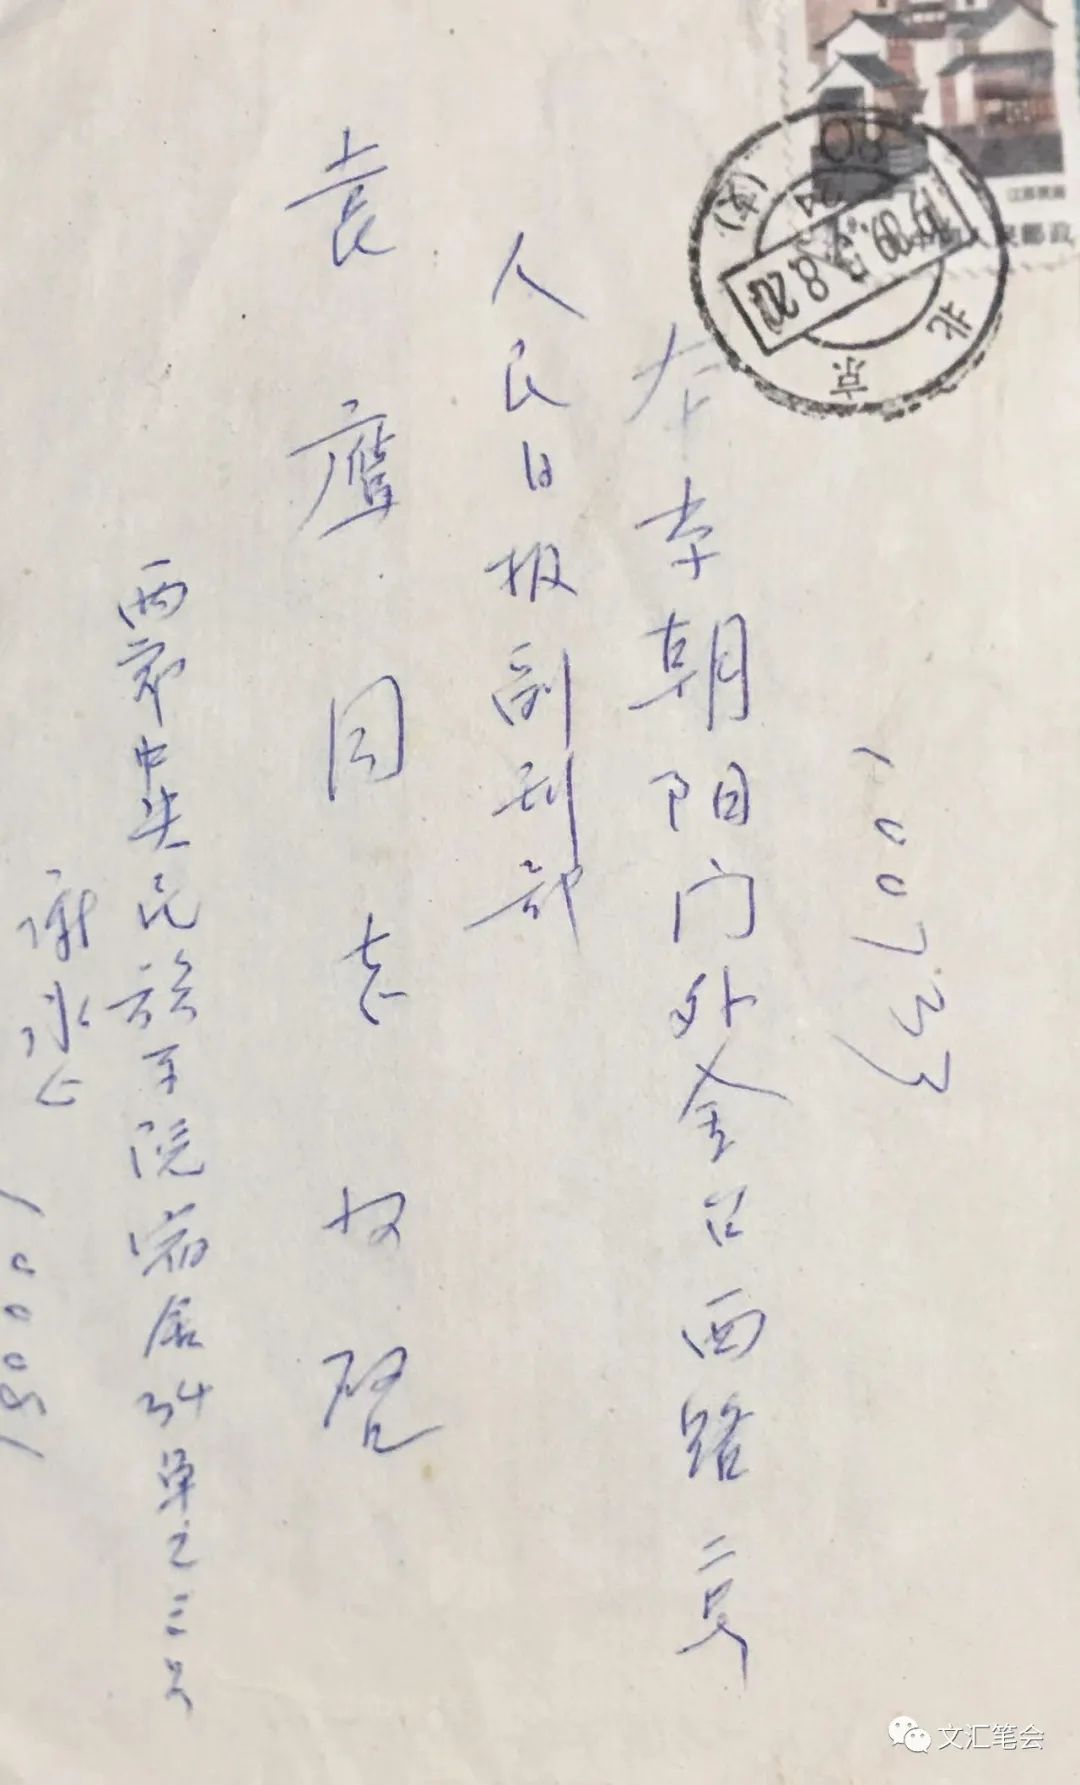 江苏民居
中国人民邮政
北京
100733
本市朝阳门外金台西路二号
人民日报副刊部
袁鹰同志 收启
西郊中央民族学院宿舍34单元三号
谢冰心
100081
文汇笔会